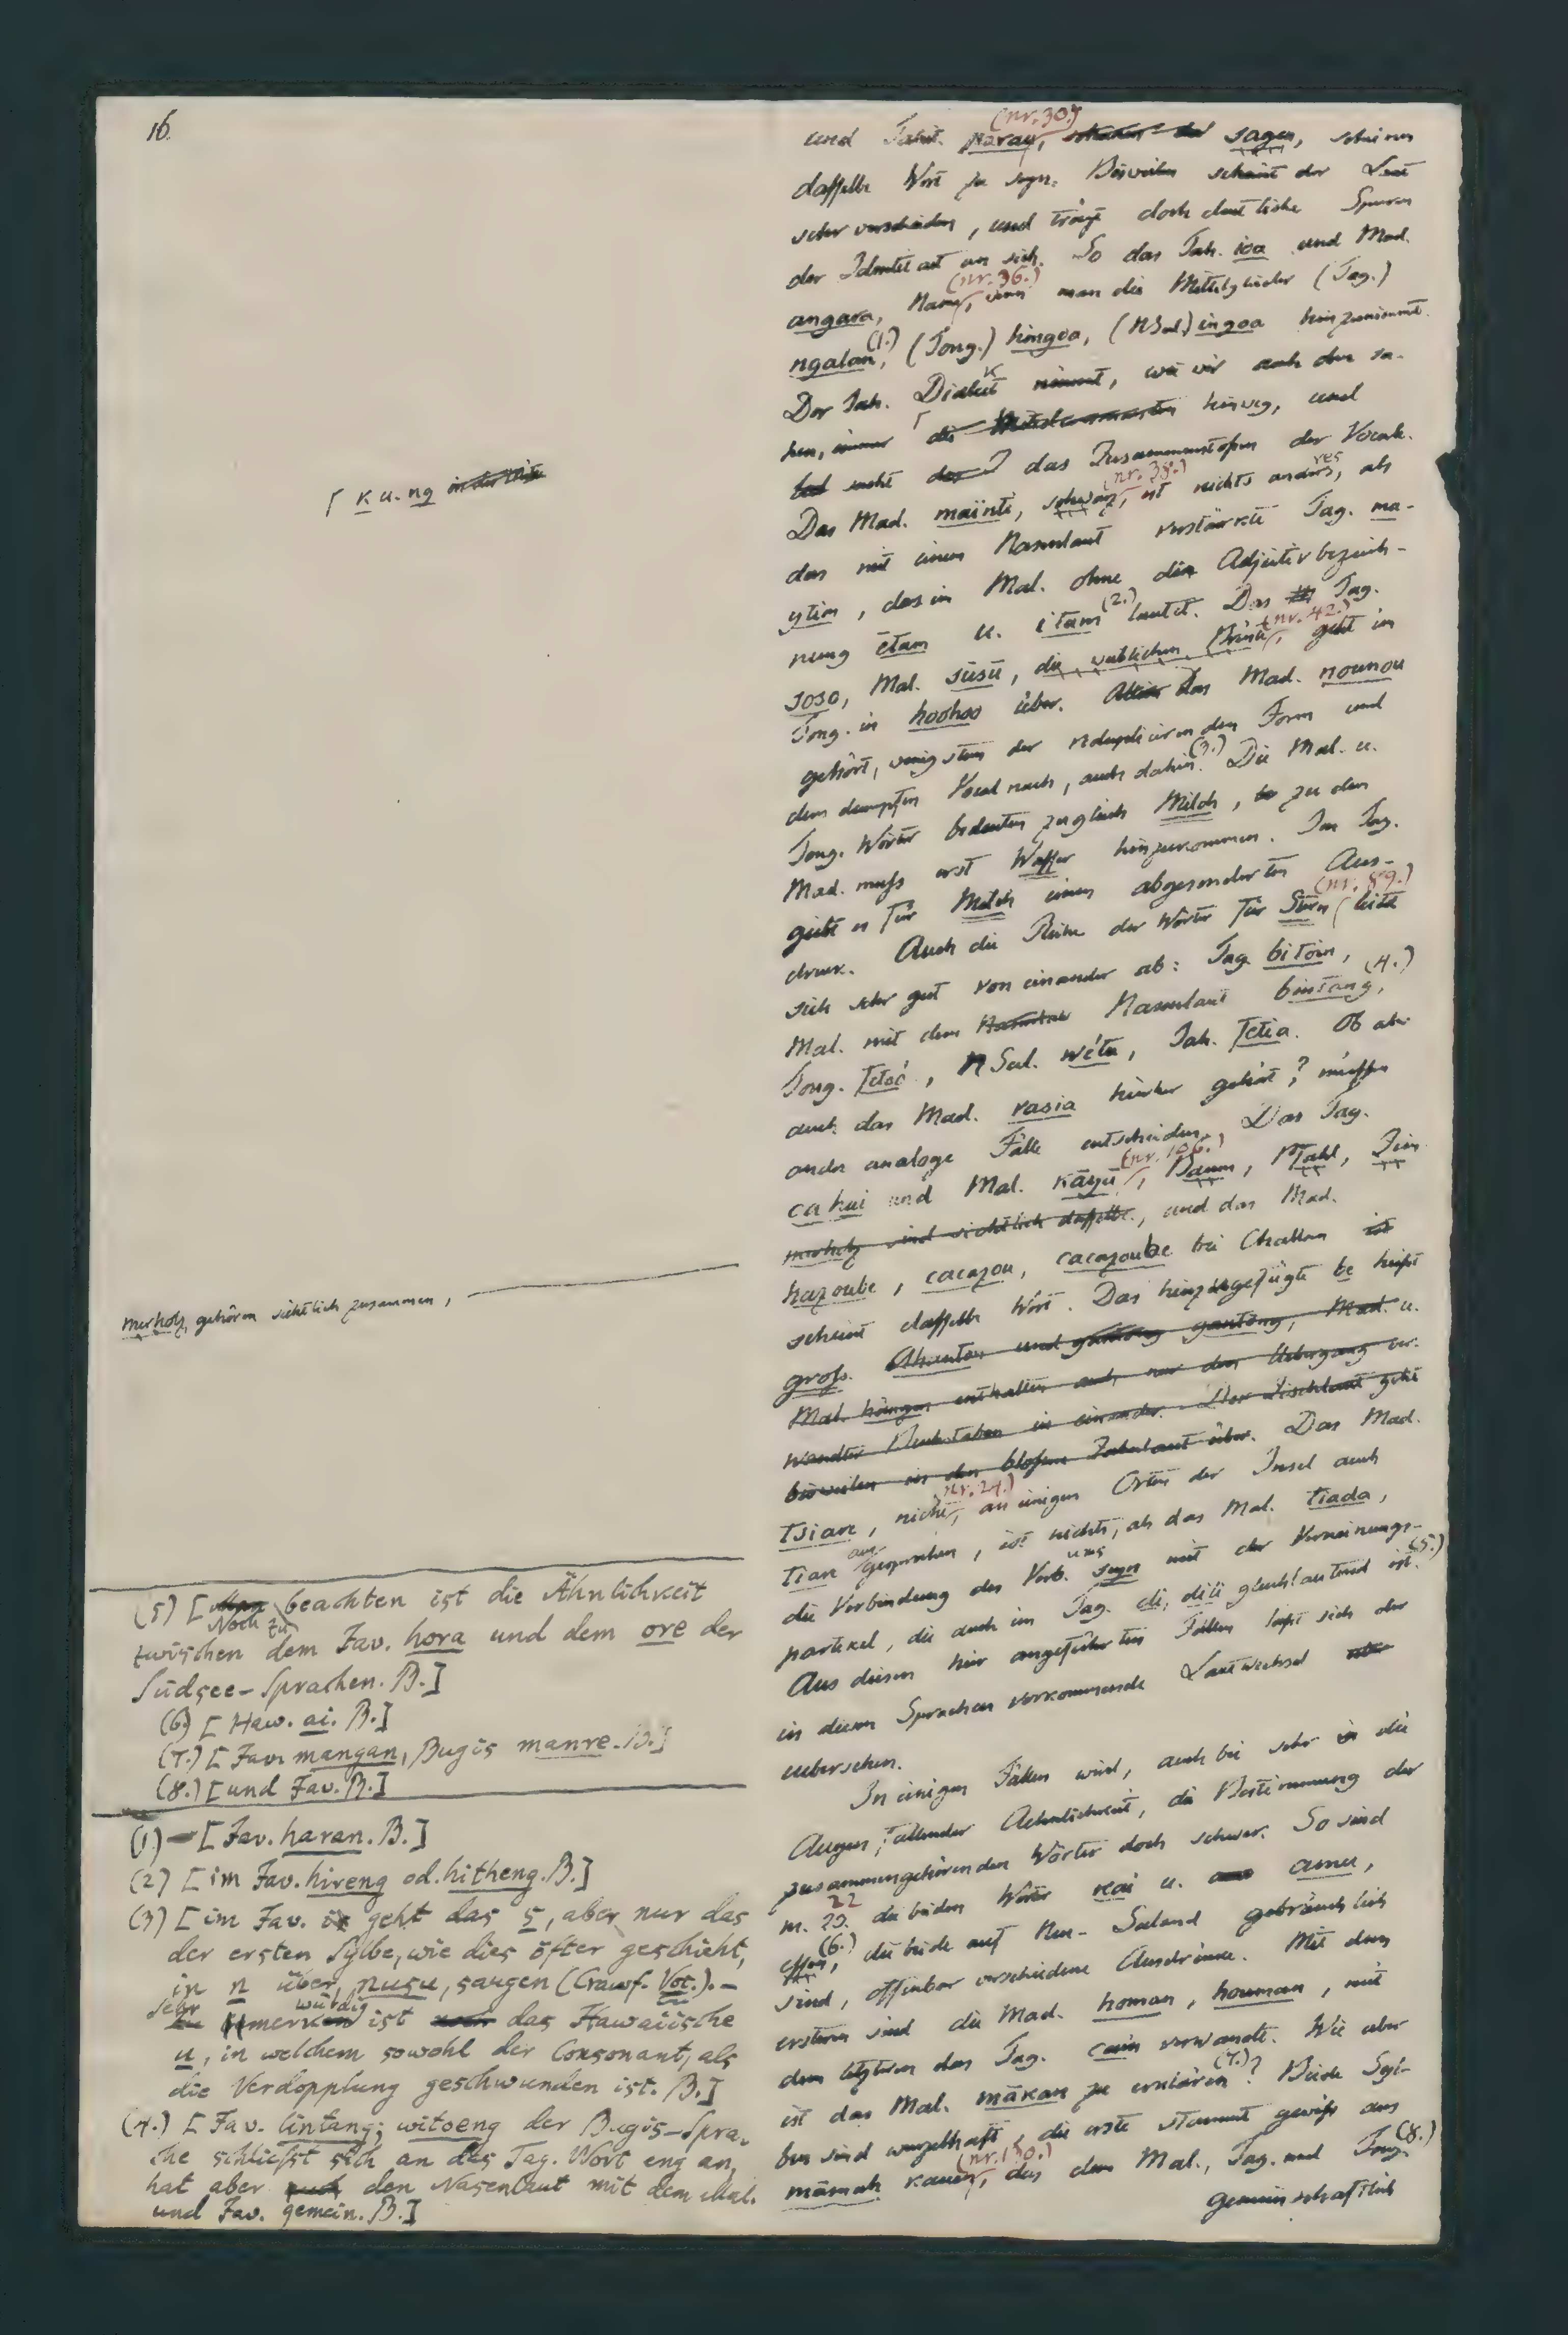 16.
(nr. 30)
und Tahit. parau, sagen, scheinen
dasselbe Wort zu seyn. Bisweilen scheint der Laut
sehr verschieden, und trägt doch deutliche Spuren
der Identitaet an sich. So das Tah. ioa und Mad.
(nr. 36.)
angara, Name, wenn man die Mittelglieder (Tag.)
ngalan, (1.) (Tong.) hingoa, (NSel.) ingoa hinzunimmt.
Der Tah. Dialect nimmt, wie wir auch oben sa-
hen, ⌈ hinweg, und
⌈ k u. ng
sucht das Zusammenstofsen der Vocale.
(nr. 38.)
Das Mad. maïnti, schwarz, ist nichts andres, als
das mit einem Nasenlaut verstärkte Tag. ma-
ytim, das im Mal. ohne die Adjectivbezeich-
nung ētam u. itam (2.) lautet. Das Tag.
(nr. 42.)
soso, Mal. sūsū, die weiblichen Brüste, geht im
Tong. in hoohoo über. Das Mad. nounou
gehört, wenigstens der reduplicirenden Form und
dem dumpfen Vocal nach, auch dahin. (3.) Die Mal. u.
Tong. Wörter bedeuten zugleich Milch, zu dem
Mad. mufs erst Wasser hinzukommen. Im Tag.
giebt es für Milch einen abgesonderten Aus-
(nr. 89.)
druck. Auch die Reihe der Wörter für Stern leitet
sich sehr gut von einander ab: Tag. bitoin,
Mal. mit dem Nasenlaut bintang, (4.)
Tong. fetoó, NSel. wétu, Tah. fetia. Ob aber
auch das Mad. vasia hierher gehört? müssen
andre analoge Fälle entscheiden. Das Tag.
(nr. 106.)
cahui und Mal. kāyū, Baum, Pfahl, Zim
merholz, gehören sichtlich zusammen,
und das Mad.
hazoube, cacazou, cacazoube bei Challan
scheint dasselbe Wort. Das hinzugefügte be heifst
grofs. Das Mad.
(nr. 24.)
tsiare, nicht, an einigen Orten der Insel auch
tiare ausgesprochen, ist nichts, als das Mal. tiada,
die Verbindung des Verb. seyn mit der Verneinungs-
partikel, die auch im Tag. di, dili gleichlautend ist. (5.)
Aus diesen hier angeführten Fällen läfst sich der
in diesen Sprachen vorkommende Lautwechsel
uebersehen.
In einigen Fällen wird, auch bei sehr in die
Augen fallender Aehnlichkeit, die Bestimmung der
zusammengehörenden Wörter doch schwer. So sind
nr. 22 die beiden Wörter kai u. amu,
essen, (6.) die beide auf Neu-Seeland gebräuchlich
sind, offenbar verschiedene Ausdrücke. Mit dem
ersteren sind die Mad. homan, houman, mit
dem letzteren das Tag. cain verwandt. Wie aber
ist das Mal. mākan zu erklären (7.)? Beide Syl-
ben sind wurzelhaft, die erste stammt gewifs aus
(nr. 130.)
māmah kauen, das dem Mal., Tag. und Tong. (8.)
gemeinschaftlich
(5) [Noch zu beachten ist die Ähnlichkeit
zwischen dem Jav. hora und dem ore der
Südsee-Sprachen. B.]
(6) [Haw. ai. B.]
(7.) [Jav. mangan, Bugis manre. B.]
(8.) [und Jav. B.]
(1) [Jav. haran. B.]
(2) [im Jav. hireng od. hitheng. B.]
(3) [im Jav. geht das s, aber nur das
der ersten Sylbe, wie dies öfter geschieht,
in n über, nusu, saugen (Crawf. Voc.). –
Sehr merkwürdig ist das Hawaiische
u, in welchem sowohl der Consonant, als
die Verdopplung geschwunden ist. B.]
(4.) [Jav. lintang; witoeng der Bugis-Spra-
che schliefst sich an das Tag. Wort eng an,
hat aber den Nasenlaut mit dem Mal.
und Jav. gemein. B.]